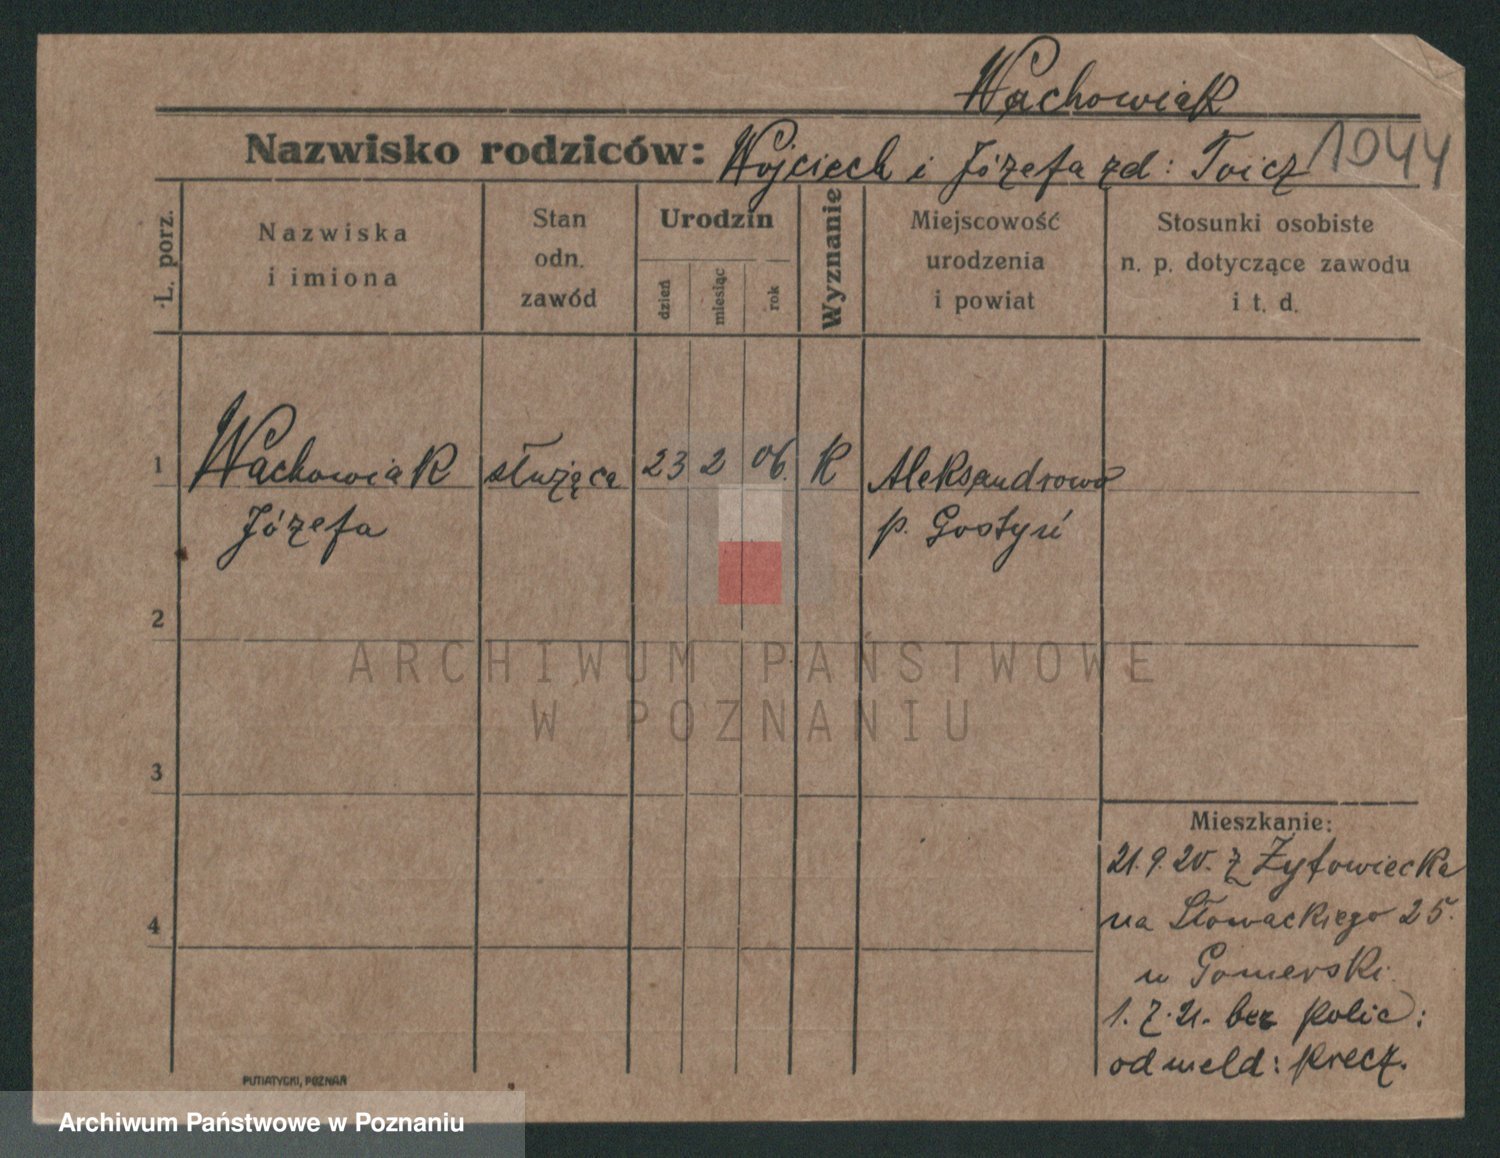 Wachowiak
Nazwisko rodziców: Wojciech i Józefa zd: Toicz 1044
L. porz.
Nazwiska
i imiona
Stan
odn.
zawód
Urodzin
dzień
miesiąc
rok
Wyznanie
Miejscowość
urodzenia
i powiat
Stosunki osobiste
n. p. dotyczące zawodu
i t. d.
1 Wachowiak służąca 23 2 06. K Aleksandrowo
Józefa p. Gostyń
2
ARCHIWUM PAŃSTWOWE
W POZNANIU
3
4
Mieszkanie:
21.9.20. z Żytowiecka
na Słowackiego 25.
u Pomerski.
1.7.21. bez polic:
odmeld: precz.
PUTIATYCKI, POZNAŃ
Archiwum Państwowe w Poznaniu